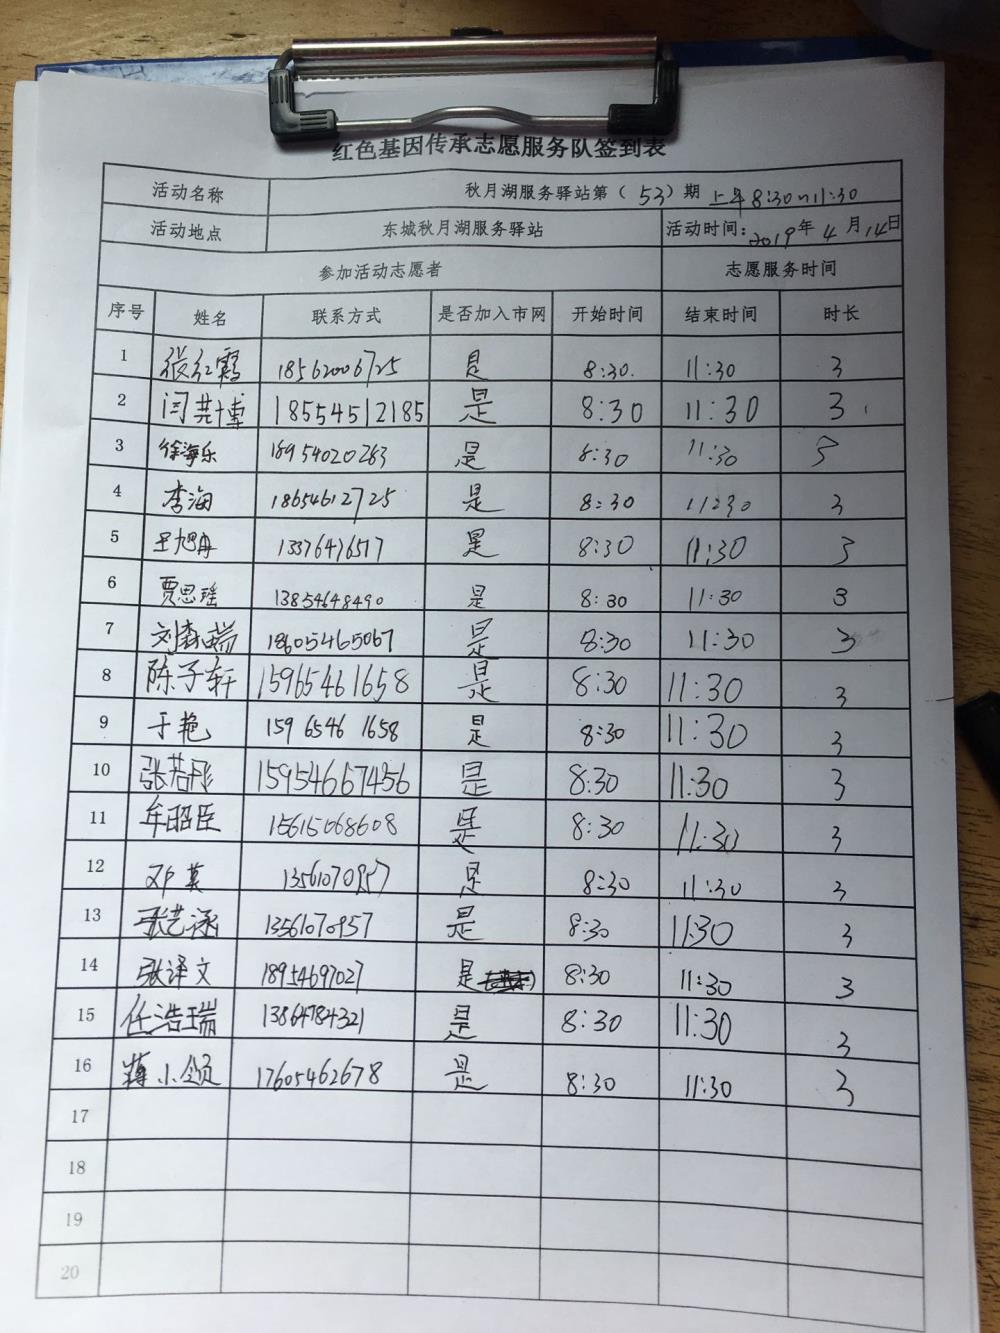 红色基因传承志愿服务队签到表
活动名称 秋月湖服务驿站第（53）期 上午8:30~11:30
活动地点 东城秋月湖服务驿站 活动时间：2019年4月14日
参加活动志愿者 志愿服务时间
序号 姓名 联系方式 是否加入市网 开始时间 结束时间 时长
1 张红霞 18562006725 是 8:30. 11:30 3
2 闫其博 18554512185 是 8:30 11:30 3
3 徐海乐 18954020263 是 8:30 11:30 3
4 李海 18654612725 是 8:30 11:30 3
5 王旭冉 13376476517 是 8:30 11:30 3
6 贾思瑶 13854648490 是 8:30 11:30 3
7 刘森瑞 18605465067 是 8:30 11:30 3
8 陈子轩 15965461658 是 8:30 11:30 3
9 于艳 159 6546 1658 是 8:30 11:30 3
10 张若彤 15954667456 是 8:30 11:30 3
11 牟昭臣 15615068608 是 8:30 11:30 3
12 邓英 13561070957 是 8:30 11:30 3
13 张艺涵 13561070957 是 8:30 11:30 3
14 张译文 18954697027 是 8:30 11:30 3
15 任浩瑞 13864784321 是 8:30 11:30 3
16 小颂 17605462678 是 8:30 11:30 3
17
18
19
20